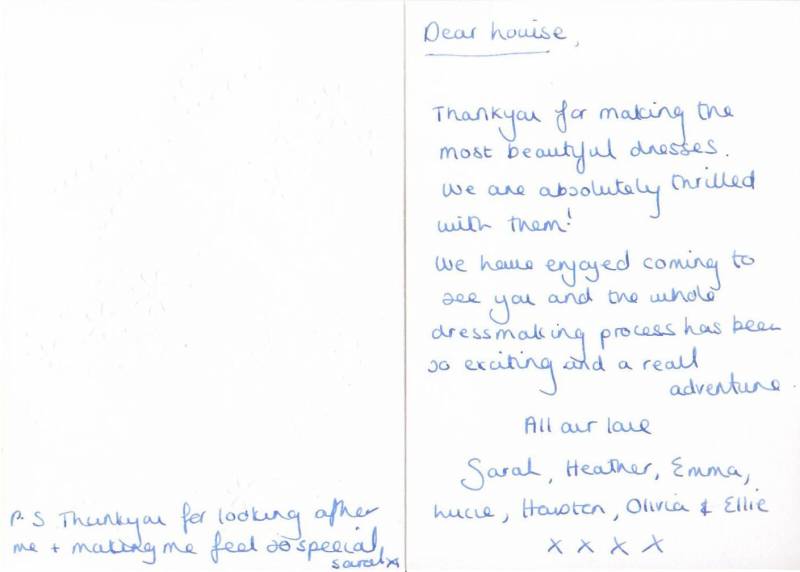 Dear Louise,
Thankyou for making the
most beautiful dresses.
We are absolutely thrilled
with them!
We have enjoyed coming to
see you and the whole
dressmaking process has been
so exciting and a reall
adventure.
All our love
Sarah, Heather, Emma,
Lucie, Howsten, Olivia & Ellie
x x x x
P.S Thankyou for looking after
me + making me feel so special
Sarah x